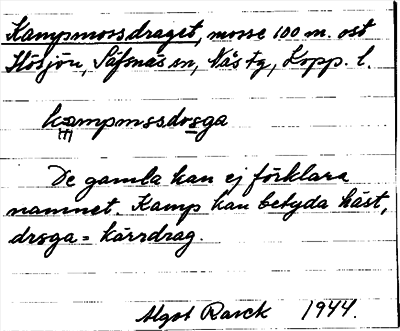 Kampmossdraget, mosse 100 m. ost
Stösjön, Säfsnäs sn, Nås tg, Kopp. l.
kampmssdrsga
De gamla kan ej förklara
namnet. Kamp kan betyda häst,
drsga = kärrdrag.
Algot Rarck 1944.